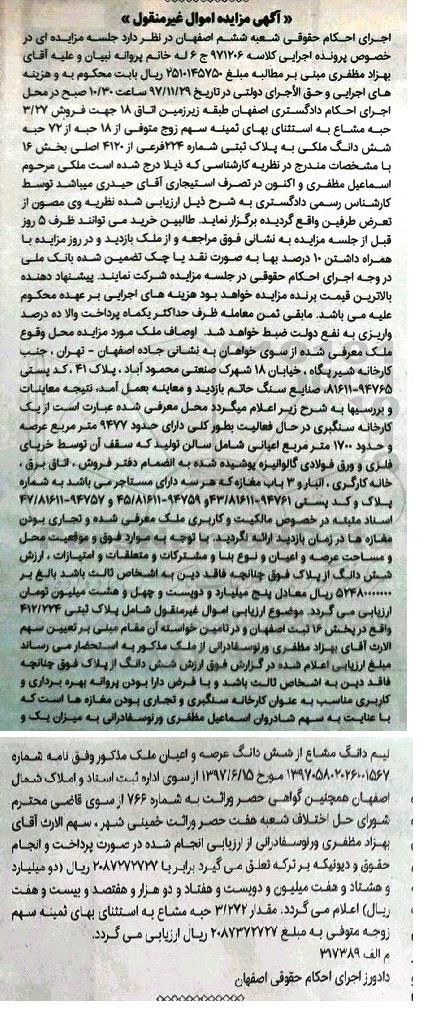 « آگهی مزایده اموال غیرمنقول »
اجرای احکام حقوقی شعبه ششم اصفهان در نظر دارد جلسه مزایده ای در
خصوص پرونده اجرایی کلاسه ۹۷۱۲۰۶ ج ۶ له خانم پروانه نبیان و علیه آقای
بهزاد مظفری مبنی بر مطالبه مبلغ ۲۵۱۰۱۴۵۷۵۰ ریال بابت محکوم به و هزینه
های اجرایی و حق الأجرای دولتی در تاریخ ۹۷/۱۱/۲۹ ساعت ۱۰/۳۰ صبح در محل
اجرای احکام دادگستری اصفهان طبقه زیرزمین اتاق ۱۸ جهت فروش ۳/۲۷
حبه مشاع به استثنای بهای ثمینه سهم زوج متوفی از ۱۸ حبه از ۷۲ حبه
شش دانگ ملکی به پلاک ثبتی شماره ۲۲۴فرعی از ۴۱۲۰ اصلی بخش ۱۶
با مشخصات مندرج در نظریه کارشناسی که ذیلا درج شده است ملکی مرحوم
اسماعیل مظفری و اکنون در تصرف استیجاری آقای حیدری میباشد توسط
کارشناس رسمی دادگستری به شرح ذیل ارزیابی شده نظریه وی مصون از
تعرض طرفین واقع گردیده برگزار نماید. طالبین خرید می توانند ظرف ۵ روز
قبل از جلسه مزایده به نشانی فوق مراجعه و از ملک بازدید و در روز مزایده با
همراه داشتن ۱۰ درصد بها به صورت نقد یا چک تضمین شده بانک ملی
در وجه اجرای احکام حقوقی در جلسه مزایده شرکت نمایند. پیشنهاد دهنده
بالاترین قیمت برنده مزایده خواهد بود هزینه های اجرایی بر عهده محکوم
علیه می باشد. مابقی ثمن معامله ظرف حداکثر یکماه پرداخت والا ده درصد
واریزی به نفع دولت ضبط خواهد شد. اوصاف ملک مورد مزایده محل وقوع
ملک معرفی شده از سوی خواهان به نشانی جاده اصفهان - تهران ، جنب
کارخانه شیر پگاه ، خیابان ۱۸ شهرک صنعتی محمود آباد ، پلاک ۴۱ ، کد پستی
۸۱۶۱۱-۹۴۷۶۵، صنایع سنگ حاتم بازدید و معاینه بعمل آمد، نتیجه معاینات
و بررسیها به شرح زیر اعلام میگردد محل معرفی شده عبارت است از یک
کارخانه سنگبری در حال فعالیت بطور کلی دارای حدود ۹۴۷۷ متر مربع عرصه
و حدود ۱۷۰۰ متر مربع اعیانی شامل سالن تولید که سقف آن توسط خرپای
فلزی و ورق فولادی گالوانیزه پوشیده شده به انضمام دفتر فروش ، اتاق برق ،
خانه کارگری ، انبار و ۳ باب مغازه که هر سه دارای مستاجر می باشد به شماره
پلاک و کد پستی ۹۴۷۶۱-۴۳/۸۱۶۱۱و ۹۴۷۵۹-۴۵/۸۱۶۱۱ و ۹۴۷۵۷-۴۷/۸۱۶۱۱
اسناد مثبته در خصوص مالکیت و کاربری ملک معرفی شده و تجاری بودن
مغازه ها در زمان بازدید ارائه نگردید. با توجه به موارد فوق و موقعیت محل
و مساحت عرصه و اعیان و نوع بنا و مشترکات و متعلقات و امتیازات ، ارزش
شش دانگ از پلاک فوق چنانچه فاقد دین به اشخاص ثالث باشد بالغ بر
۵۲۴۸۰۰۰۰۰۰۰ ریال معادل پنج میلیارد و دویست و چهل و هشت میلیون تومان
ارزیابی می گردد. موضوع ارزیابی اموال غیرمنقول شامل پلاک ثبتی ۴۱۲/۲۲۴
واقع در بخش ۱۶ ثبت اصفهان و در تامین خواسته آن مقام مبنی بر تعیین سهم
الارث آقای بهزاد مظفری ورنوسفادرانی از ملک مذکور به استحضار می رساند
مبلغ ارزیابی اعلام شده در گزارش فوق ارزش شش دانگ از پلاک فوق چنانچه
فاقد دین به اشخاص ثالث باشد و با فرض دارا بودن پروانه بهره برداری و
کاربری مناسب به عنوان کارخانه سنگبری و تجاری بودن مغازه ها است که
با عنایت به سهم شادروان اسماعیل مظفری ورنوسفادرانی به میزان یک و
نیم دانگ مشاع از شش دانگ عرصه و اعیان ملک مذکور وفق نامه شماره
۱۳۹۷۰۵۸۰۲۰۲۶۰۰۱۵۶۷ مورخ ۱۳۹۷/۶/۱۵ از سوی اداره ثبت اسناد و املاک شمال
اصفهان همچنین گواهی حصر وراثت به شماره ۷۶۶ از سوی قاضی محترم
شورای حل اختلاف شعبه هفت حصر وراثت خمینی شهر ، سهم الارث آقای
بهزاد مظفری ورنوسفادرانی از ارزیابی انجام شده در صورت پرداخت و انجام
حقوق و دیونیکه بر ترکه تعلق می گیرد برابر با ۲۰۸۷۲۷۲۷۲۷ ریال (دو میلیارد
و هشتاد و هفت میلیون و دویست و هفتاد و دو هزار و هفتصد و بیست و هفت
ریال) اعلام می گردد. مقدار ۳/۲۷۲ حبه مشاع به استثنای بهای ثمینه سهم
زوجه متوفی به مبلغ ۲۰۸۷۳۷۲۷۲۷ ریال ارزیابی می گردد.
م الف ۳۱۷۳۸۹
دادورز اجرای احکام حقوقی اصفهان